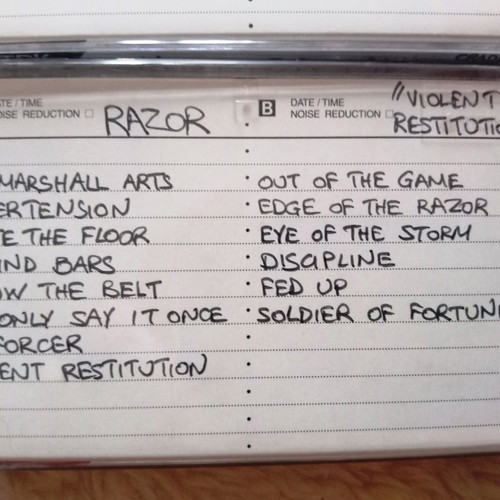 TE / TIME
ISE REDUCTION
RAZOR
B
DATE / TIME
NOISE REDUCTION
"VIOLENT
RESTITUTIO
MARSHALL ARTS
ERTENSION
E THE FLOOR
IND BARS
OW THE BELT
ONLY SAY IT ONCE
FORCER
ENT RESTITUTION
OUT OF THE GAME
EDGE OF THE RAZOR
EYE OF THE STORM
DISCIPLINE
FED UP
SOLDIER OF FORTUN